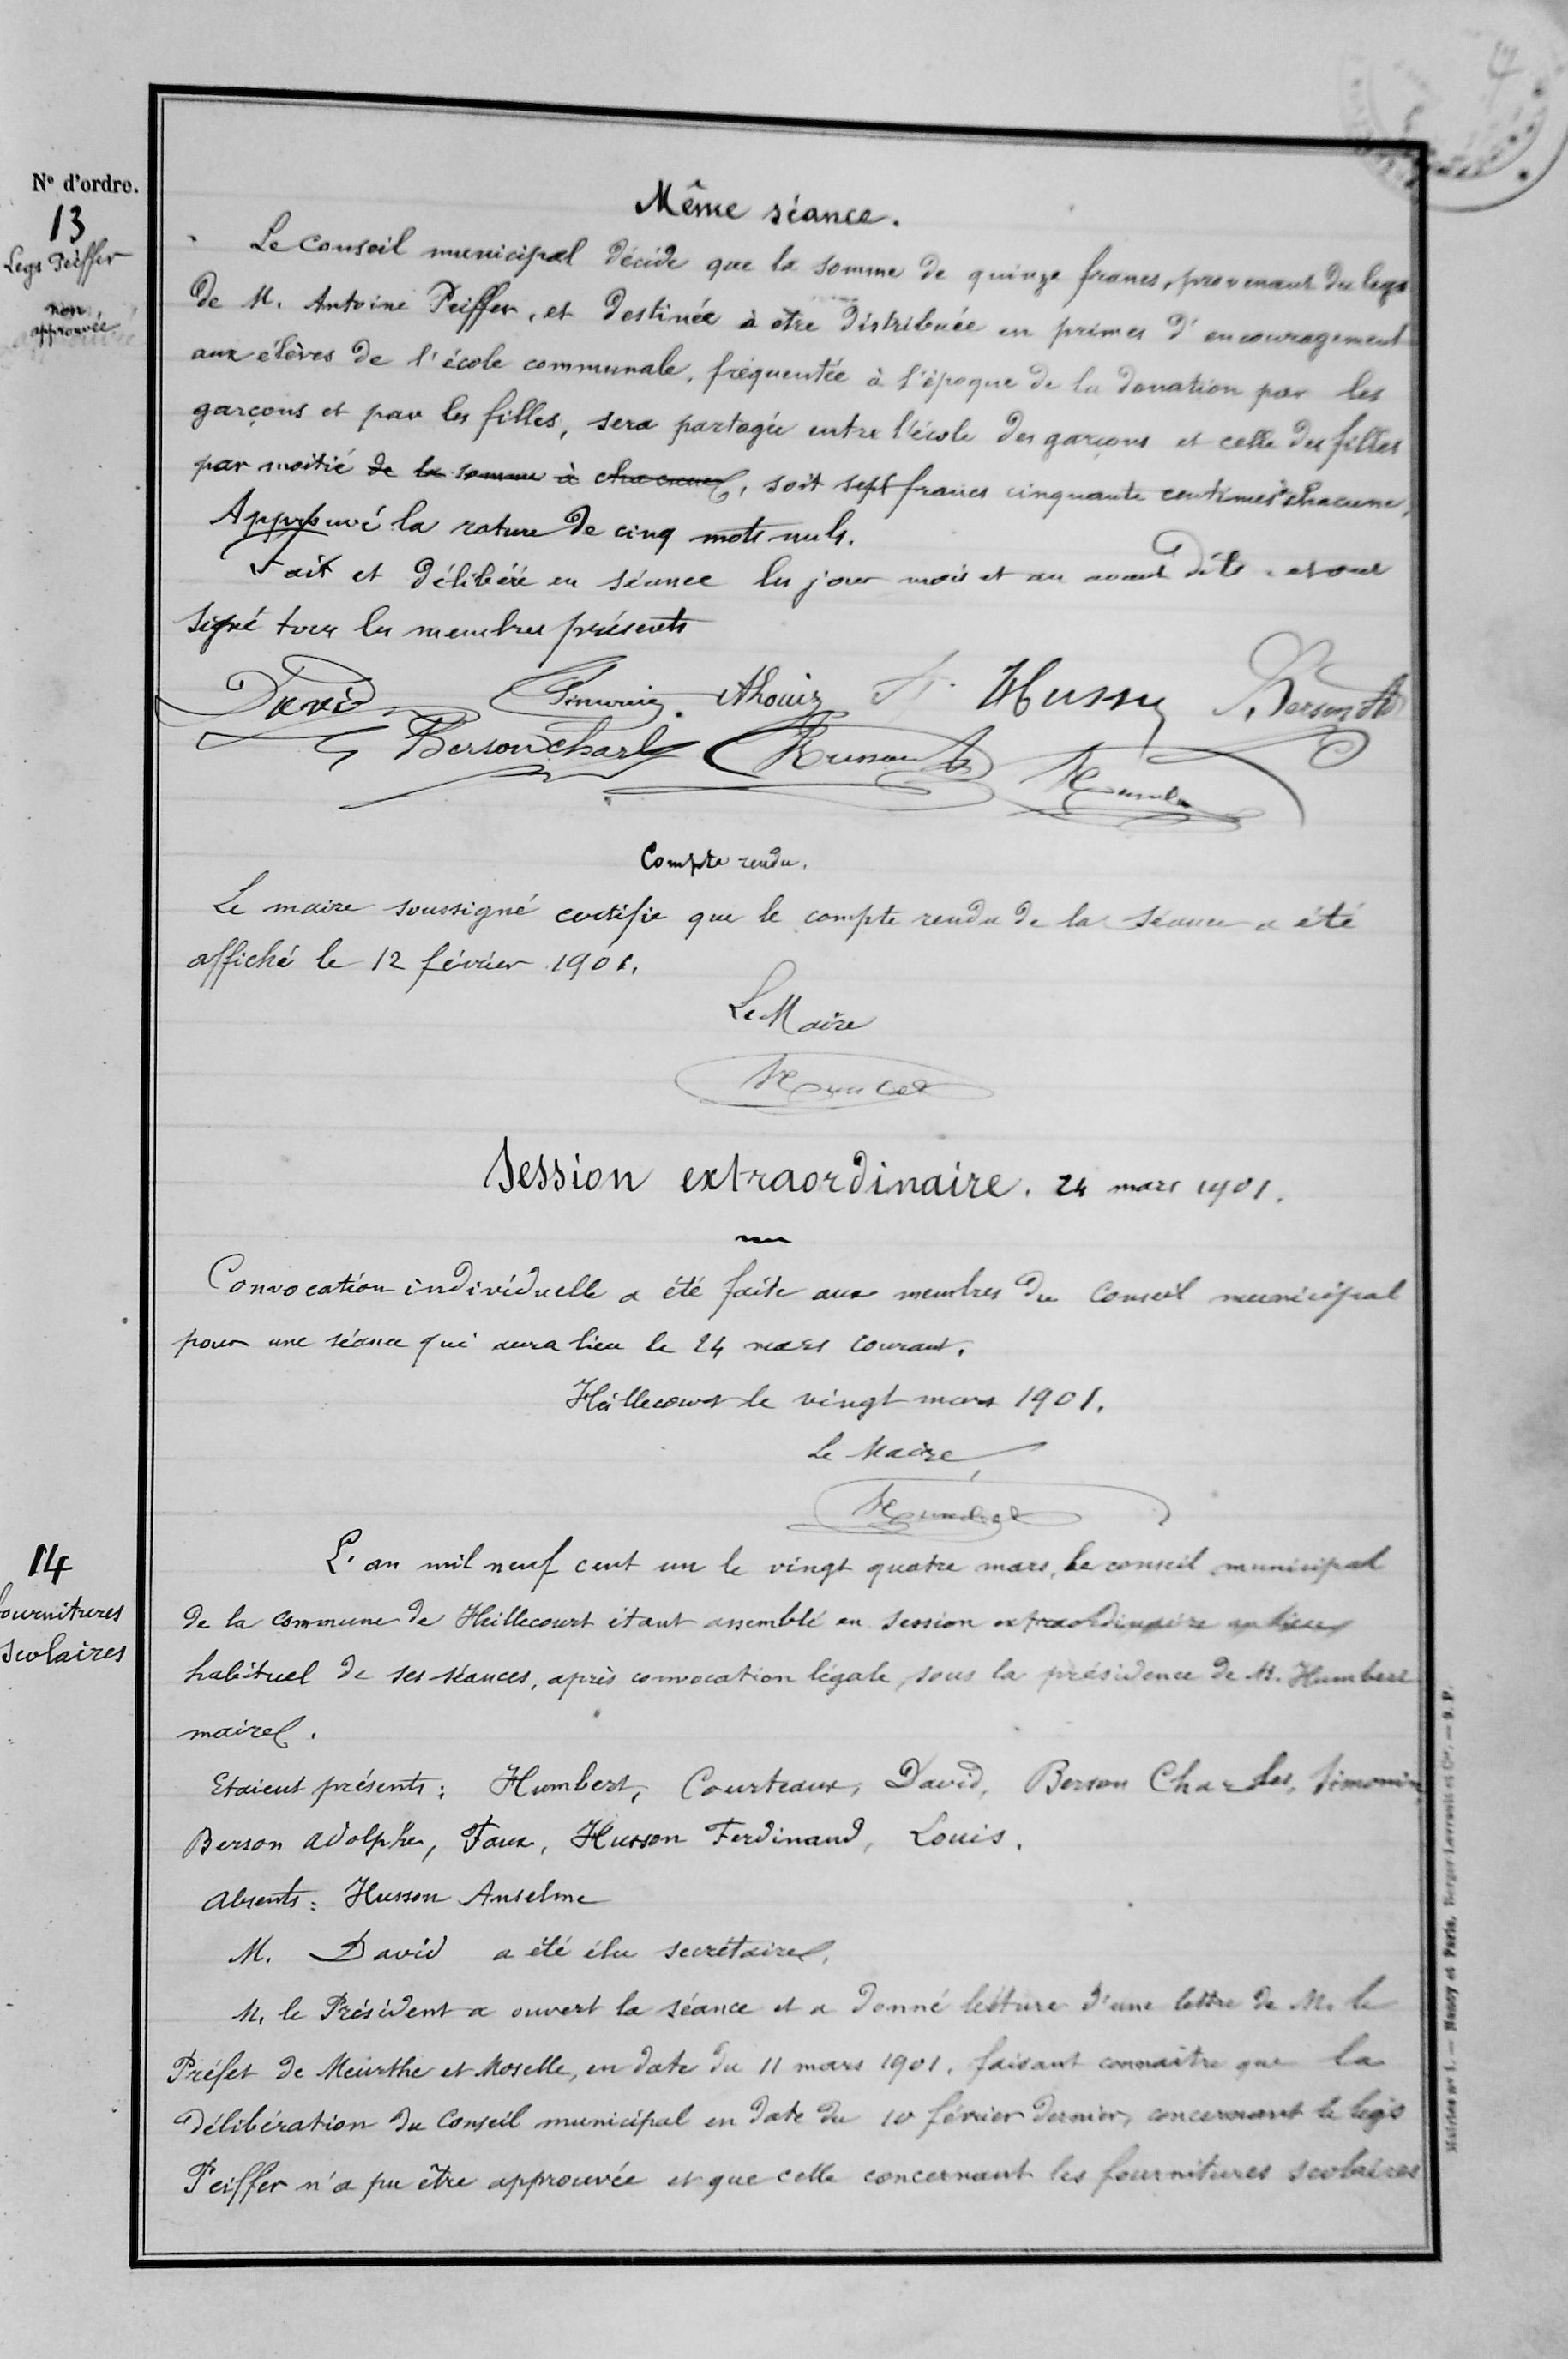 4
N° d'ordre.
13
Legs Peiffer
non
approuvée
Même séance.
Le Conseil municipal décide que la somme de quinze francs, provenant du legs
de M. Antoine Peiffer, et destinée à être distribuée en primes d'encouragement
aux elèves de l'école communale, fréquentée à l'époque de la donation par les
garçons et par les filles, sera partagée entre l'école des garçons et celle des filles
par moitié de la somme à chacune, soit sept francs cinquante centimes à chacune,
Approuvé la rature de cinq mots nuls.
Fait et délibéré en séance les jour mois et an avant dits. et ont
signé tous les membres présents
David Simonin Husson
Berson Charles
Compte rendu.
Le maire soussigné certifie que le compte rendu de la séance a été
affiché le 12 février 1901.
Le Maire
Humbert
Session extraordinaire. 24 mars 1901.
Convocation individuelle a été faite aux membres du Conseil municipal
pour une séance qui aura lieu le 24 mars courant.
Heillecourt le vingt mars 1901.
Le Maire,
Humbert
14
fournitures
scolaires
L'an mil neuf cent un le vingt quatre mars, le conseil municipal
de la commune de Heillecourt étant assemblé en session extraordinaire au lieu
habituel de ses séances, après convocation légale, sous la présidence de M. Humbert
maire.
Etaient présents: Humbert, Courteaux, David, Berson Charles, Simonin
Berson Adolphe, Faux, Husson Ferdinand, Louis.
Absents: Husson Anselme
M. David a été élu secrétaire.
M. le Président a ouvert la séance et a donné lecture d'une lettre de M. le
Préfet de Meurthe et Moselle, en date du 11 mars 1901, faisant connaître que la
délibération du Conseil municipal en date du 10 février dernier, concernant le legs
Peiffer n'a pu être approuvée et que celle concernant les fournitures scolaires
Mairies n° 1. — Nancy et Paris, Berger-Levrault et Cie. — 9. P.